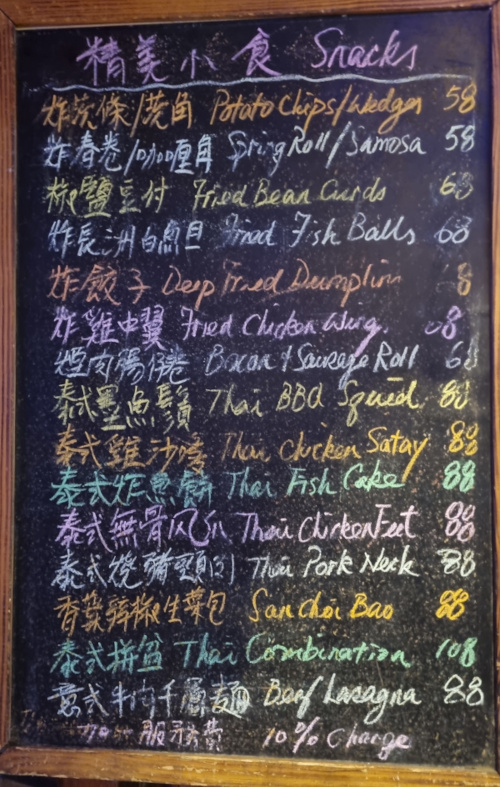 精美小食 Snacks
炸茨條/茨角 Potato Chips/Wedges 58
炸春卷/咖喱角 Spring Roll/Samosa 58
椒鹽豆付 Fried Bean Curds 68
炸長洲白魚旦 Fried Fish Balls 68
炸餃子 Deep Fried Dumplin
炸雞中翼 Fried Chicken Wing.
煙肉腸仔卷 Bacon & Sausage Roll 68
泰式墨魚鬚 Thai BBQ Squid 88
泰式雞沙嗲 Thai Chicken Satay 88
泰式炸魚餅 Thai Fish Cake 88
泰式無骨风爪 Thai Chicken Feet 88
泰式燒豬頸肉 Thai Pork Neck 88
香葉辣椒生菜包 San Choi Bao 88
泰式拼盆 Thai Combination 108
意式牛肉千層麵 Beef Lasagna 88
加一服務費 10% Charge